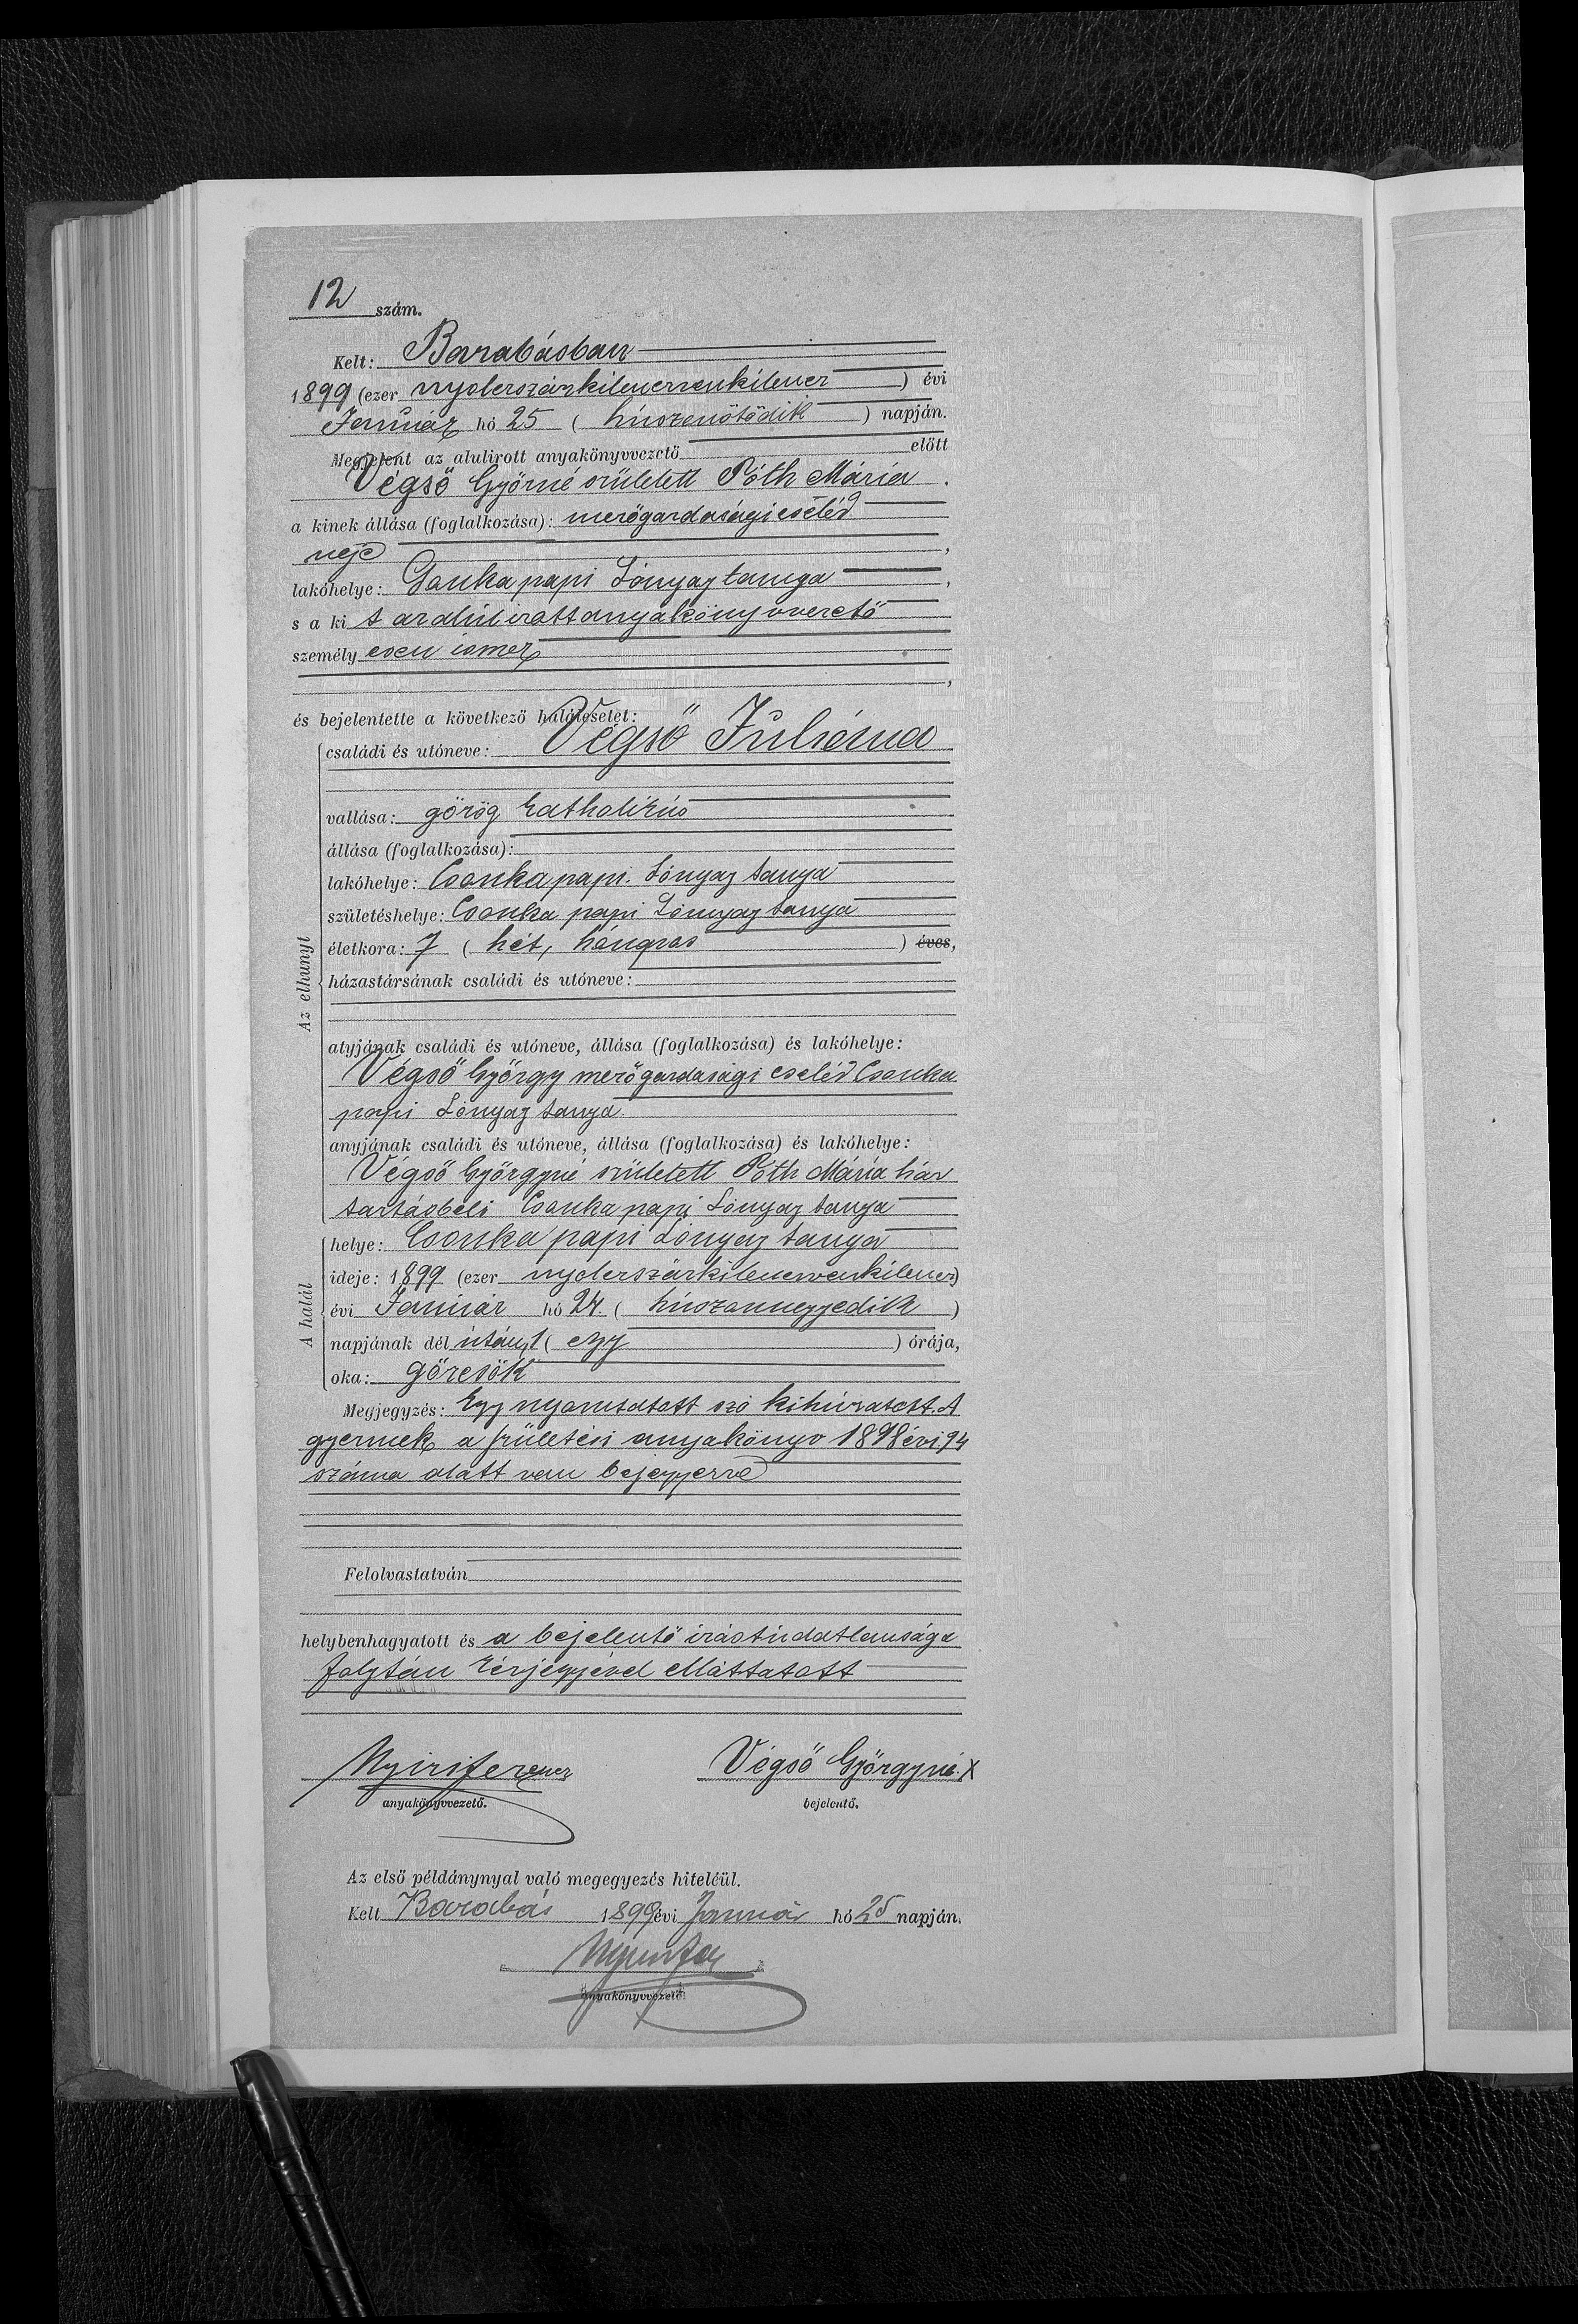 12 szám.
Kelt: Barabásban
1899 (ezer nyolczszázkilenczvenkilencz ) évi
Január hó 25 ( húszenötödik ) napján.
Megjelent az alulirott anyakönyvvezető előtt
Végső Györné született Póth Mária
a kinek állása (foglalkozása): mezőgazdasági cseléd
neje ,
lakóhelye: Csonkapapi Lónyay tanya ,
s a ki t az alúlirott anyakönyvvezető
személy esen ismer
,
és bejelentette a következő halálesetet:
Az elhunyt
családi és utóneve: Végső Juliánna
vallása: görög katholikus
állása (foglalkozása):
lakóhelye: Csonkapapi Lónyay tanya
születéshelye: Csonka papi Lónyay tanya
életkora: 7 ( hét, hónapos ) éves,
házastársának családi és utóneve:
atyjának családi és utóneve, állása (foglalkozása) és lakóhelye:
Végső György mezőgazdasági cseléd Csonka
papi Lónyay tanya
anyjának családi és utóneve, állása (foglalkozása) és lakóhelye:
Végső Györgyné született Póth Mária ház
tartásbeli Csonka papi Lónyay tanya
A halál
helye: Csonka papi Lónyay tanya
ideje: 1899 (ezer nyolczszázkilenczvenkilencz)
évi Január hó 24. ( húszonnegyedik )
napjának dél után 1 ( egy ) órája,
oka: görcsök
Megjegyzés: Egy nyomtatott szó kihúzatott. A
gyermek a születési anyakönyv 1898 évi 94
száma alatt van bejegyezve
Felolvastatván
helybenhagyatott és a bejelentő irástudatlansága
folytán kézjegyével elláttatott
Nyiri Ferencz Végső Györgyné X
anyakönyvvezető. bejelentő.
Az első példánynyal való megegyezés hiteléül.
Kelt Barabás 1899 évi Január hó 25 napján.
Nyiri Fer
anyakönyvvezető